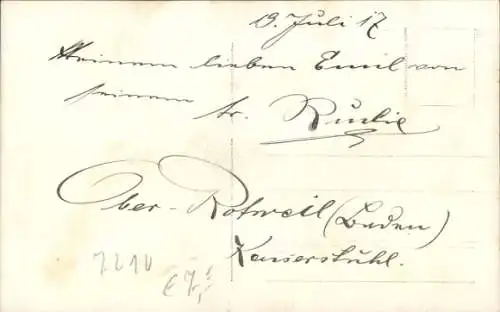 19. Juli 17
Meinem lieben Emil von
seinem Fr. Rudie
Ober-Rotweil (Baden)
Kaiserstuhl.
7210
€ 7,-